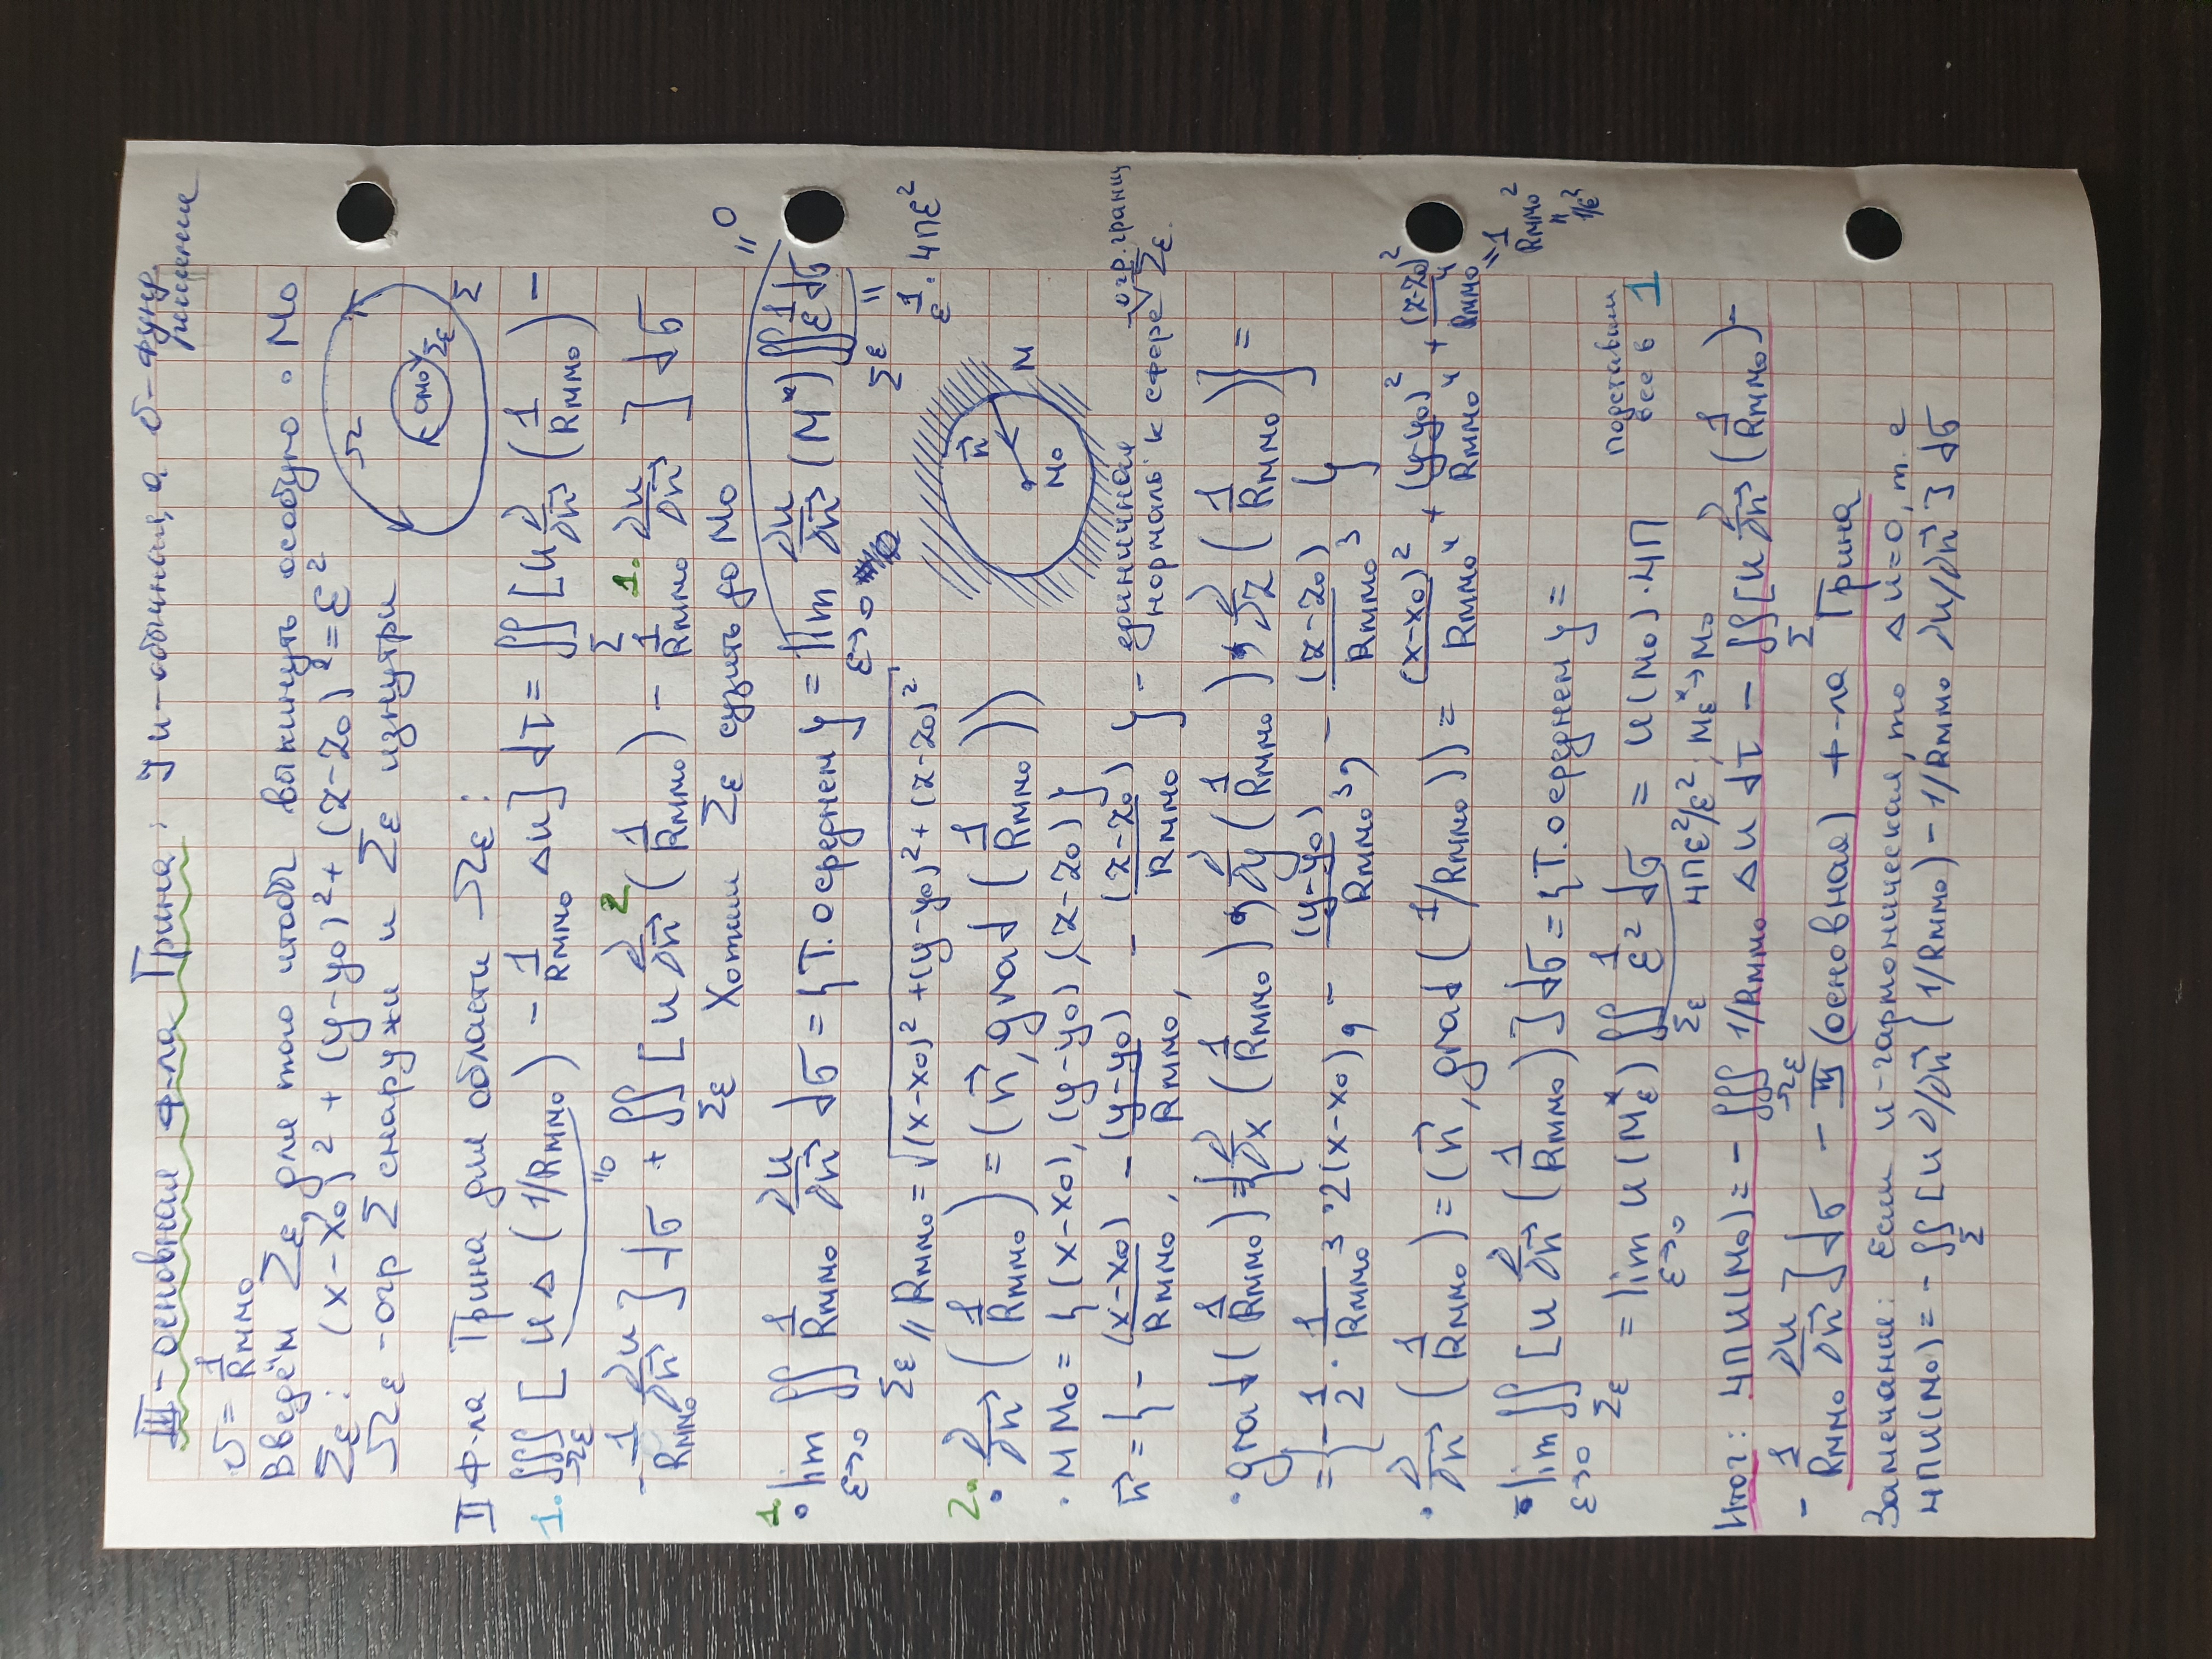 III - основная ф-ла Грина: у u - обычная, а v - фунд. решение
v = 1/R_{MM_0}
Введём Σ_ε, для того чтобы выкинуть особую · M_0
Σ_ε: (x-x_0)^2 + (y-y_0)^2 + (z-z_0)^2 = ε^2
Ω_ε - огр Σ снаружи и Σ_ε изнутри
Ω M_0 Σ_ε Σ
II ф-ла Грина для области Ω_ε:
1. ∭_{Ω_ε} [u Δ(1/R_{MM_0}) - 1/R_{MM_0} Δu] dτ = ∬_Σ [u ∂/∂n⃗ (1/R_{MM_0}) -
"0
- 1/R_{MM_0} ∂u/∂n⃗] dσ + ∬_{Σ_ε} [u ∂/∂n⃗ (1/R_{MM_0}) - 1/R_{MM_0} ∂u/∂n⃗] dσ
2. 1.
Хотим Σ_ε сузить до M_0
1. • lim_{ε→0} ∬_{Σ_ε} 1/R_{MM_0} ∂u/∂n⃗ dσ = {Т. о среднем} = lim_{ε→0} ∂u/∂n⃗ (M*) ∬_{Σ_ε} 1/ε dσ = 0
" 1/ε · 4πε^2
// R_{MM_0} = √((x-x_0)^2 + (y-y_0)^2 + (z-z_0)^2
2. • ∂/∂n⃗ (1/R_{MM_0}) = (n⃗, grad (1/R_{MM_0}))
n⃗ M_0 M
• MM_0 = {(x-x_0), (y-y_0), (z-z_0)}
n⃗ = {- (x-x_0)/R_{MM_0}, - (y-y_0)/R_{MM_0}, - (z-z_0)/R_{MM_0}} - единичная нормаль к сфере Σ_ε.
• grad (1/R_{MM_0}) = {∂/∂x (1/R_{MM_0}), ∂/∂y (1/R_{MM_0}), ∂/∂z (1/R_{MM_0})} =
= {- 1/2 · 1/R_{MM_0}^3 · 2(x-x_0), - (y-y_0)/R_{MM_0}^3, - (z-z_0)/R_{MM_0}^3}
• ∂/∂n⃗ (1/R_{MM_0}) = (n⃗, grad (1/R_{MM_0})) = (x-x_0)^2/R_{MM_0}^4 + (y-y_0)^2/R_{MM_0}^4 + (z-z_0)^2/R_{MM_0}^4 = 1/R_{MM_0}^2
" 1/ε^2
• lim_{ε→0} ∬_{Σ_ε} [u ∂/∂n⃗ (1/R_{MM_0})] dσ = {Т. о среднем} =
= lim_{ε→0} u(M_ε*) ∬_{Σ_ε} 1/ε^2 dσ = u(M_0) · 4π
подставим все в 1
4πε^2/ε^2, M_ε* → M_0
Итог: 4πu(M_0) = - ∭_{Ω_ε} 1/R_{MM_0} Δu dτ - ∬_Σ [u ∂/∂n⃗ (1/R_{MM_0}) -
- 1/R_{MM_0} ∂u/∂n⃗] dσ - III (основная) ф-ла Грина
Замечание: Если u - гармоническая, то Δu = 0, т. е
4πu(M_0) = - ∬_Σ [u ∂/∂n⃗ (1/R_{MM_0}) - 1/R_{MM_0} ∂u/∂n⃗] dσ